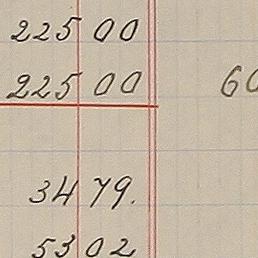 225 00
225 00 60
34 79.
53 02